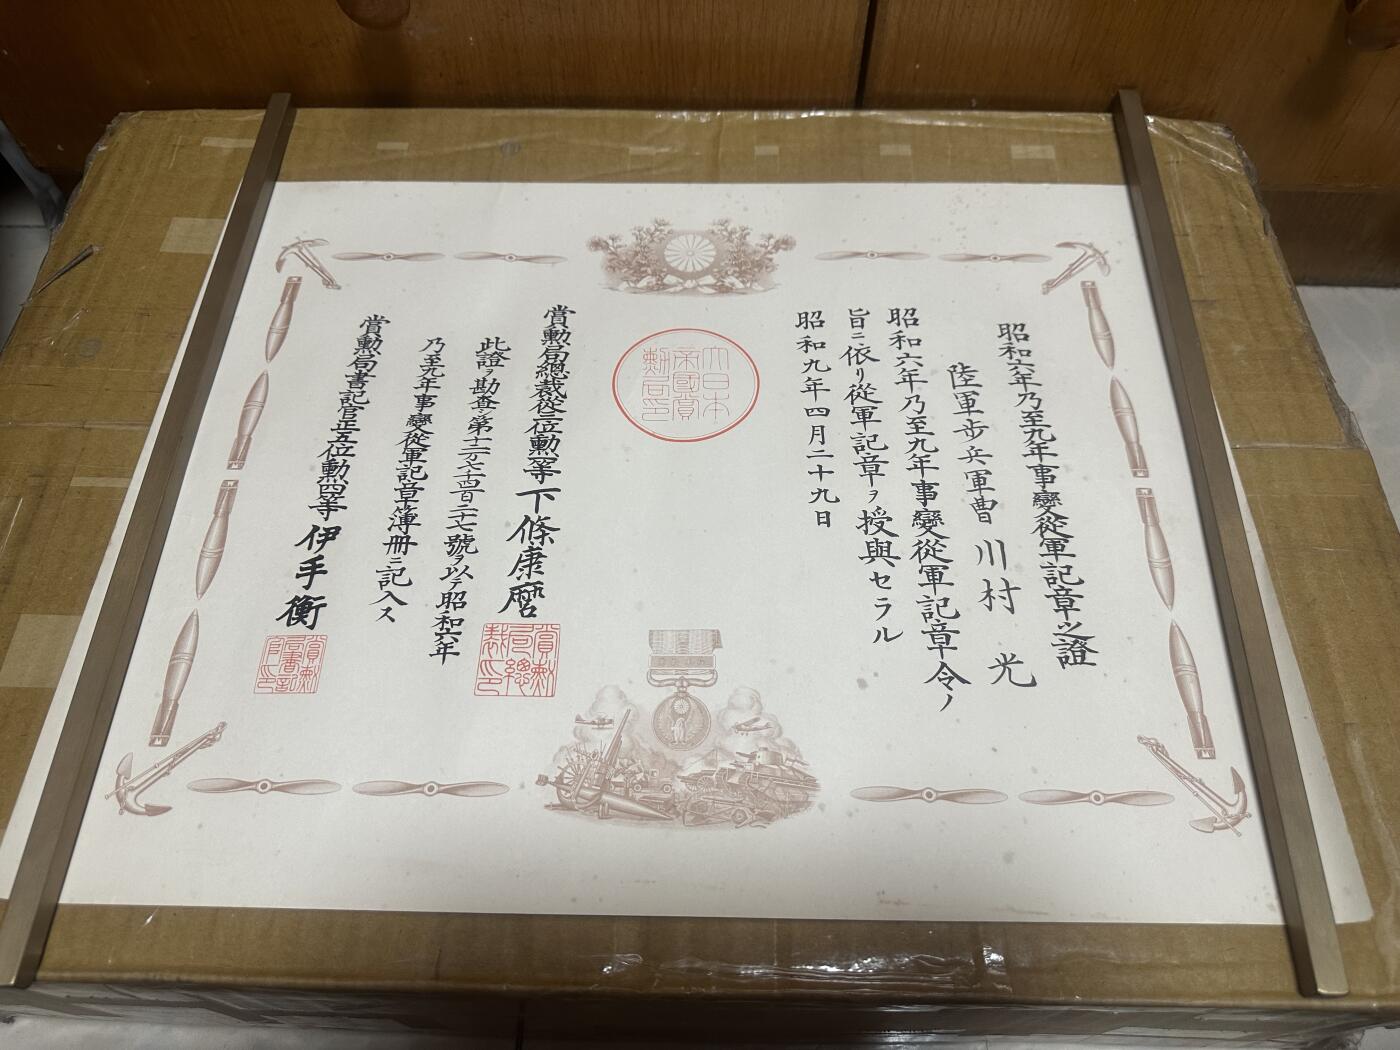 昭和六年乃至九年事變從軍記章之證
陸軍步兵軍曹 川村 光
昭和六年乃至九年事變從軍記章令ノ
旨ニ依リ從軍記章ヲ授與セラル
昭和九年四月二十九日
大日本
帝國賞
勲局印
賞勲局總裁從三位勲一等下條康麿
賞勲
局總
裁印
此證ヲ勘査シ第十二万七千四百二十七號ヲ以テ昭和六年
乃至九年事變從軍記章簿册ニ記入ス
賞勲局書記官正五位勲四等伊手衡
賞勲
局書記
官印